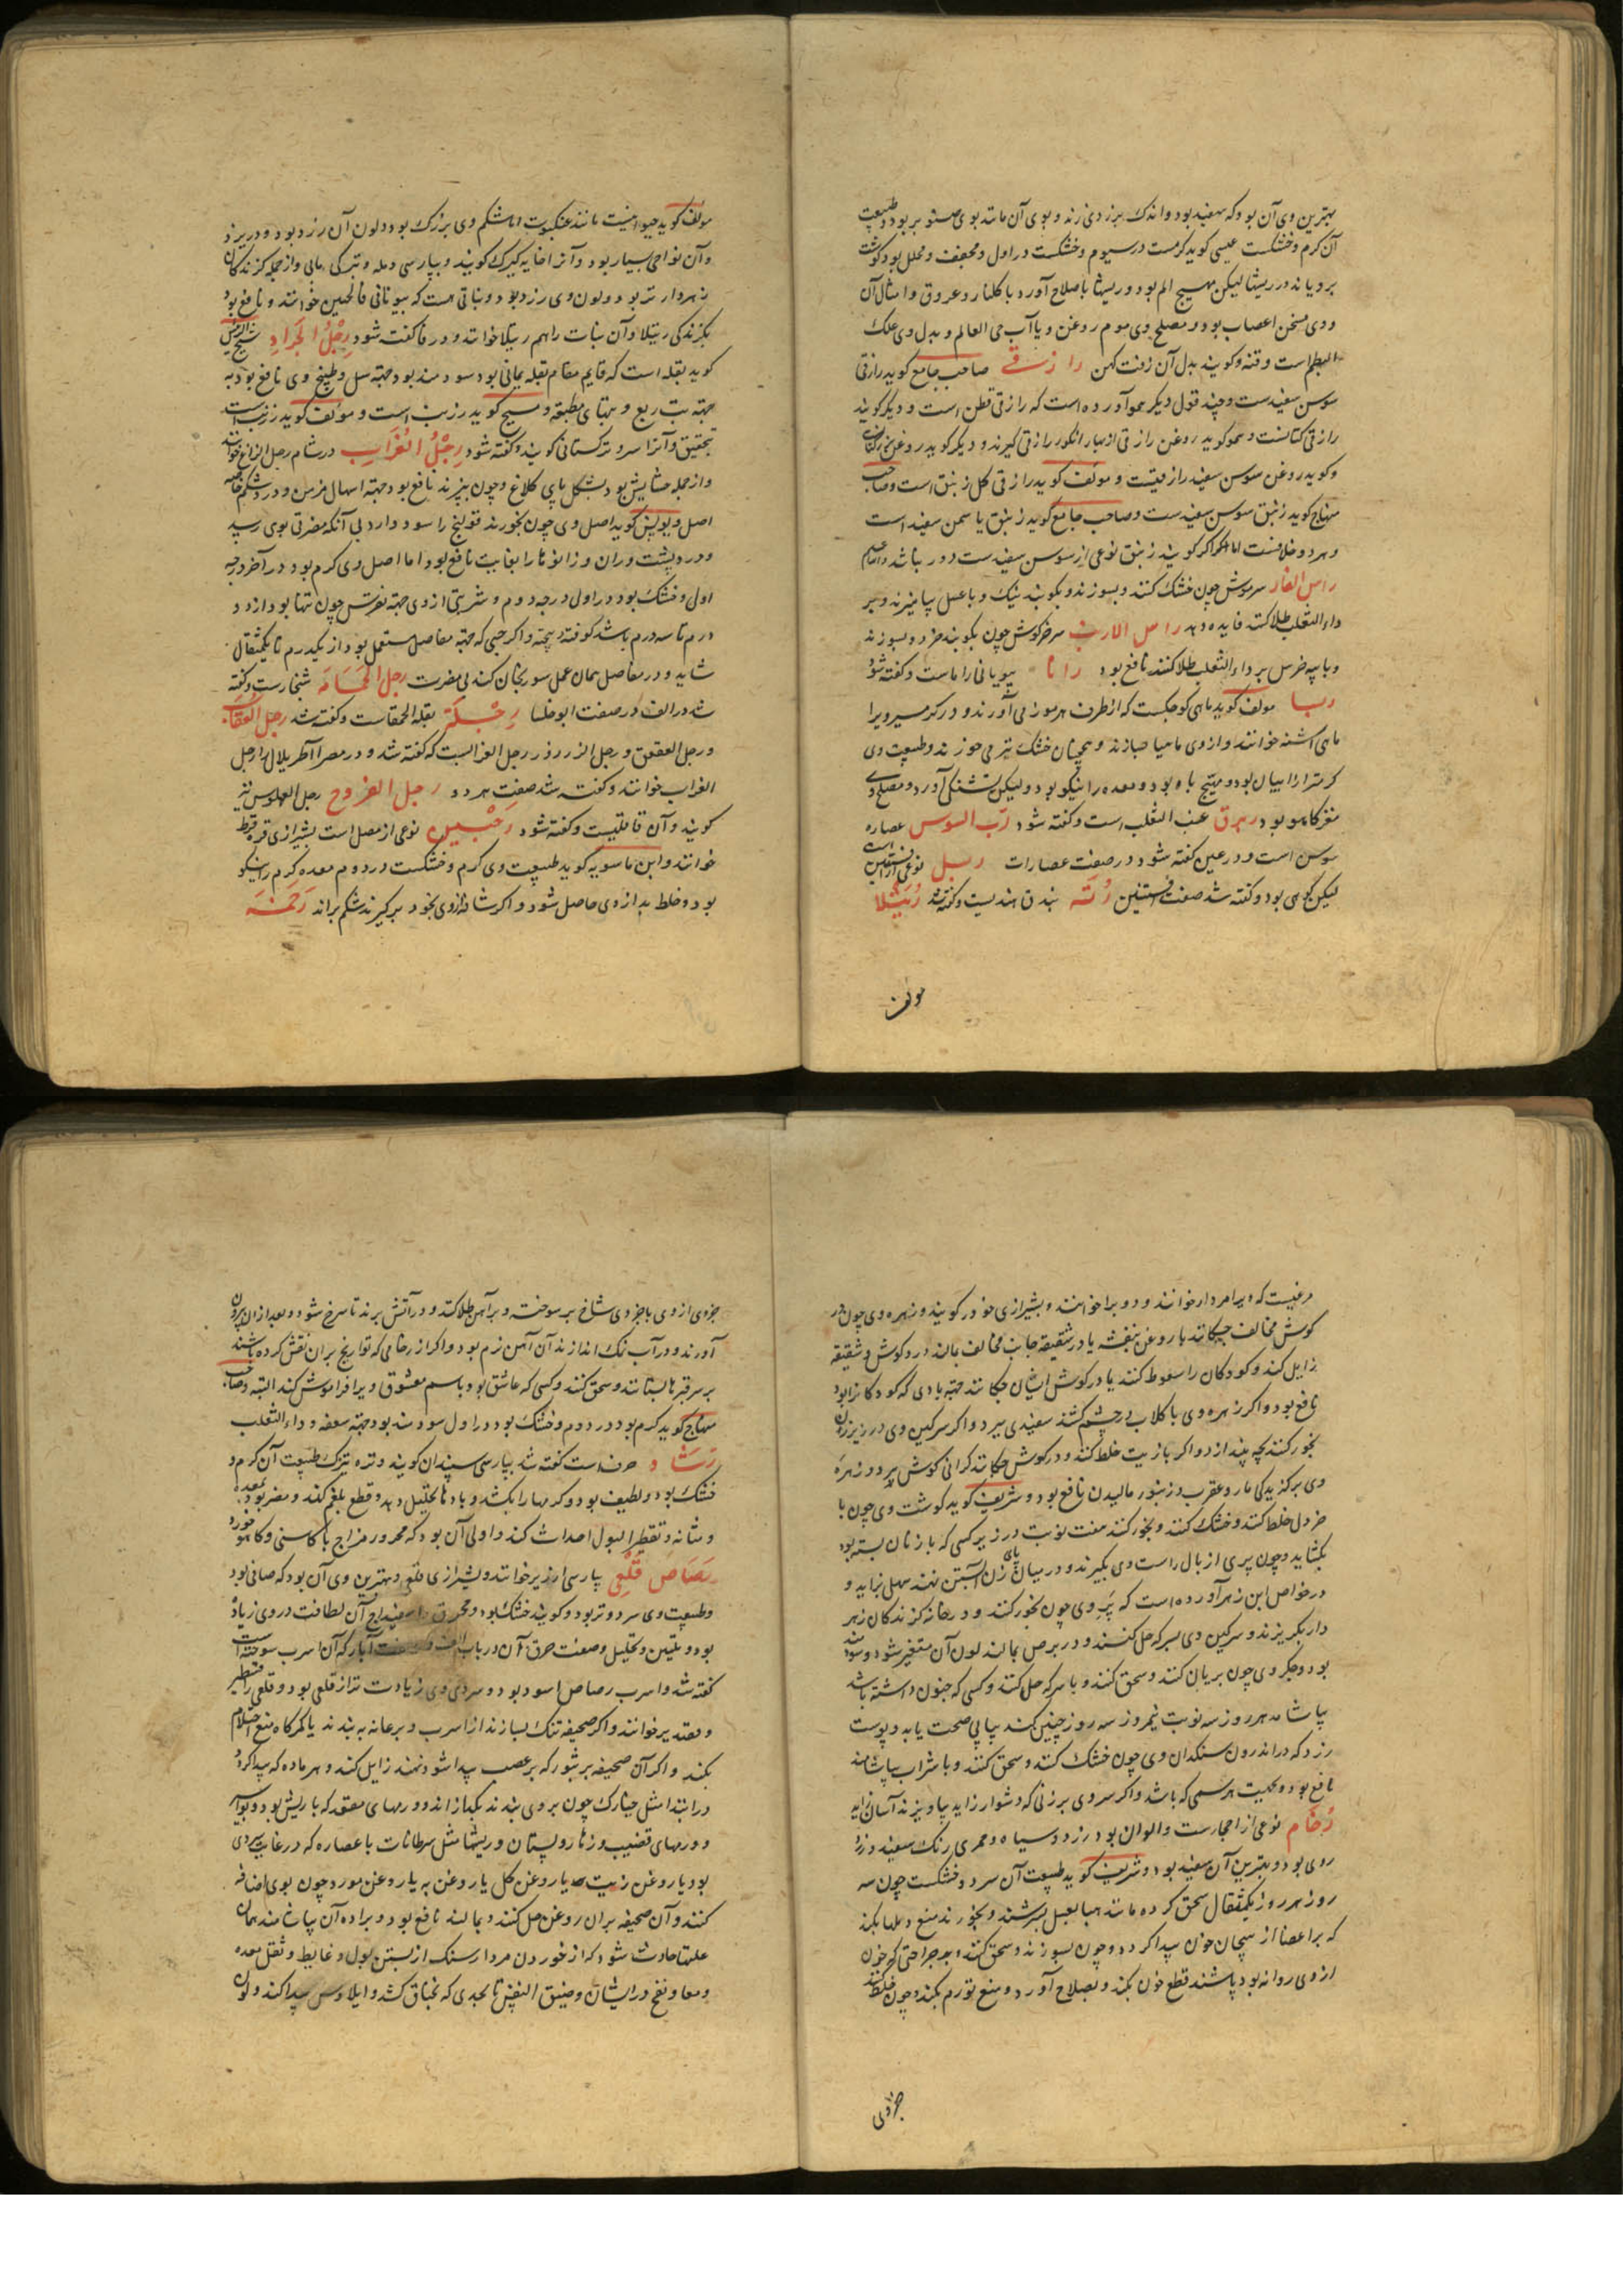 بهترین وی آن بود که سفید بود و اندک بزردی زند و بوی آن مانند بوی صنوبر بود و طبیعت
آن گرم و خشکست عیسی گوید گرمست در سیوم و خشکست در اول و مجفف و محلل بود گوشت
برویاند در ریشها لیکن مهیج الم بود و ریشها باصلاح آورد با گلنار و عروق و امثال آن
و وی مسخن اعصاب بود و مصلح وی موم روغن و یا آب حی العالم و بدل وی علک
البطم است و قنه و گویند بدل آن زفت کهن رازقی صاحب جامع گوید رازقی
سوسن سفیدست و چند قول دیگر هم آورده است که رازقی قطن است و دیگر گویند
رازقی کتانست و همو گوید روغن رازقی از بهار انگور رازقی گیرند و دیگر گوید روغن کتان
و گوید روغن سوسن سفید رازقیست و مولف گوید رازقی گل زنبق است و صاحب
منهاج گوید زنبق سوسن سفیدست و صاحب جامع گوید زنبق یاسمن سفید است
و هر دو خلافست اما اگر گویند زنبق نوعی از سوسن سفیدست دور نباشد و الله اعلم
راس الفار سر موش چون خشک کنند و بسوزند و بکوبند نیک و با عسل بیامیزند و بر
داء الثعلب طلا کنند فایده دهد راس الارنب سر خرگوش چون بکوبند خرد و بسوزند
و با پیه خرس بر داء الثعلب طلا کنند نافع بود رانا بیونانی راماست و گفته شود
ربیا مولف گوید ماهی کوچکست که از طرف هرموز می آورند و در گرمسیر ویرا
ماهی اشنه خوانند و از وی ماهیا به سازند و همچنان خشک نیز می خورند و طبیعت وی
گرمتر از اربیان بود و مهیج باه بود و معده را نیکو بود ولیکن تشنگی آورد و مصلح وی
مغز کاهو بود ربرق عنب الثعلب است و گفته شود رب السوس عصاره
سوسن است و در عین گفته شود در صفت عصارات ربل نوعی از افسنتین است
لیکن کوهی بود و گفته شد صفت افسنتین رته بندق هندیست و گفته شد رتیلا
مولف
مولف گوید حیوانیست مانند عنکبوت اما شکم وی بزرگ بود و لون آن زرد بود و در یزد
و آن نواحی بسیار بود و آنرا خایه گیرک گویند و بپارسی دمله و بترکی بابی و از جمله گزندگان
زهردار بتر بود و لون وی زرد بود و نباتی هست که بیونانی فالحین خوانند و نافع بود
بگزندگی رتیلا و آن نبات را هم رتیلا خوانند و در فا گفته شود رجل الجراد شیخ الرئیس
گوید بقله است که قایم مقام بقله یمانی بود سودمند بود جهة سل و طبیخ وی نافع بود به
جهة تب ربع و تبهای مطبقه و مسیح گوید زرنب است و مولف گوید زرنب است
بتحقیق و آنرا سرو ترکستانی گویند و گفته شود رجل الغراب در شام رجل الزاغ خوانند
و از جمله حشایش بود بشکل پای کلاغ و چون بپزند نافع بود جهة اسهال مزمن و درد شکم خاصه
اصل و بولس گوید اصل وی چون بخورند قولنج را سود دارد بی آنکه مضرتی بوی رسد
و درد پشت و ران و زانوها را بغایت نافع بود اما اصل وی گرم بود در آخر درجه
اول و خشک بود در اول درجه دوم و شربتی از وی جهة نقرس چون تنها بود از دو
درم تا سه درم باشد کوفته و بیخته و اگر حبی که جهة مفاصل مستعمل بود از یکدرم تا یکمثقال
شاید و در مفاصل همان عمل سورنجان کند بی مضرت رجل الحمامه شنجارست و گفته
شد در الف در صفت ابوخلسا رجله بقلة الحمقاست و گفته شد رجل العقاب
و رجل العقعق و رجل الزرزور رجل الغرابست که گفته شد و در مصر آطریلال را رجل
الغراب خوانند و گفته شد صفت هر دو رجل الفروج رجل الفلوس نیز
گویند و آن قاقلیست و گفته شود رخبین نوعی از مصل است بشیرازی قره قرط
خوانند و ابن ماسویه گوید طبیعت وی گرم و خشکست در دوم معده گرم را نیکو
بود و خلط بد از وی حاصل شود و اگر شافه از وی بخود برگیرند شکم براند رخمه
مرغیست که ویرا مردار خوانند و دو برا خوانند و بشیرازی خورخور گویند و زهره وی چون در
گوش مخالف چکانند با روغن بنفشه یا در شقیقه جانب مخالف بمالند درد گوش و شقیقه
زایل کند و کودکان را سعوط کنند یا در گوش ایشان چکانند جهة بادی که کودکانرا بود
نافع بود و اگر زهره وی با گلاب در چشم کشند سفیدی ببرد و اگر سرگین وی در زیر زن
بخور کنند بچه بیندازد و اگر با زیت خلط کنند و در گوش چکانند گرانی گوش ببرد و زهره
وی بر گزیدگی مار و عقرب و زنبور مالیدن نافع بود و شریف گوید گوشت وی چون با
خردل خلط کنند و خشک کنند و بخور کنند هفت نوبت در زیر کسی که باز زنان بسته بود
بگشاید و چون پری از بال راست وی بگیرند و در میان پای زن آبستن نهند سهل بزاید و
در خواص ابن زهر آورده است که پر وی چون بخور کنند در خانه گزندگان زهر
دار بگریزند و سرگین وی بسرکه حل کنند و در برص بمالند لون آن متغیر شود و سودمند
بود و جگر وی چون بریان کنند و سحق کنند و با سرکه حل کنند و کسی که جنون داشته باشد
بیاشامد هر روز سه نوبت نیمروز سه روز چنین کند پیاپی صحت یابد و پوست
زرد که در اندرون سنگدان وی چون خشک کنند و سحق کنند و با شراب بیاشامند
نافع بود و جمیع هر سمی که باشد و اگر سر وی بر زنی که دشوار زاید بیاویزند آسان زاید
رخام نوعی از احجارست و الوان بود زرد و سیاه و خمری رنگ سفید و زرد
روی بود و بهترین آن سفید بود و شریف گوید طبیعت آن سرد و خشکست چون سه
روز هر روز یکمثقال سحق کرده مانند هبا بعسل بسرشند و بخورند منع دملها بکند
که بر اعضا از هیجان خون پیدا گردد و چون بسوزند و سحق کنند و بر جراحتی که خون
از وی روانه بود پاشند قطع خون بکند و بصلاح آورد و منع تورم بکند و چون خلط کنند
جزوی
جزوی از وی با جزوی شاخ بز سوخته و بر آهن طلا کنند و در آتش برند تا سرخ شود و بعد از آن بیرون
آورند و در آب نمک اندازند آن آهن نرم بود و اگر از رخامی که تواریخ بران نقش کرده باشند
بر سر قبرها بستانند و سحق کنند و کسی که عاشق بود باسم معشوق ویرا فراموش کند البته و صاحب
منهاج گوید گرم بود در دوم و خشک بود در اول سودمند بود جهة سعفه و داء الثعلب
رشاد حرف است گفته شد بپارسی سپندان گویند و تره تیزک طبیعت آن گرم و
خشک بود و لطیف بود و کرمها را بکشد و بادها تحلیل دهد و قطع بلغم کند و مضر بود بمعده
و مثانه و تقطیر البول احداث کند و اولی آن بود که محرور مزاج با کاسنی و کاهو خورد
رصاص قلعی پارسی ارزیز خوانند و بشیرازی قلعی و بهترین وی آن بود که صافی بود
و طبیعت وی سرد و تر بود و گویند خشک بود و محرق و اسفیداج آن لطافت در وی زیاده
بود و تلیین و تحلیل و صفت حرق آن در باب الف در صفت آبار که آن اسرب سوخته است
گفته شد و اسرب رصاص اسود بود و سردی وی زیادت تر از قلعی بود و قلعی را قسطیر
و قصدیر خوانند و اگر صحیفه تنگ بسازند از اسرب و بر عانه به بندند یا کمرگاه منع احتلام
بکند و اگر آن صحیفه بر بثور که بر عصب پیدا شود نهند زایل کند و هر ماده که پیدا گردد
در ابتدا مثل خیارک چون بر وی بندند بگدازاند و ورمهای مقعد که با ریش بود و بواسیر
و ورمهای قضیب و زهار و پستان و ریشها مثل سرطانات با عصاره که در غایت سردی
بود یا روغن زیت یا روغن گل یا روغن به یا روغن مورد چون بوی اضافه
کنند و آن صحیفه بران روغن حل کنند و بمالند نافع بود و براده آن بیاشامند همان
علتها حادث شود که از خوردن مردارسنگ از بستن بول و غایط و ثقل معده
و معا و نفخ در ایشان و ضیق النفس تا بحدی که بخناق کشد و ایلاوس پیدا کند و لون